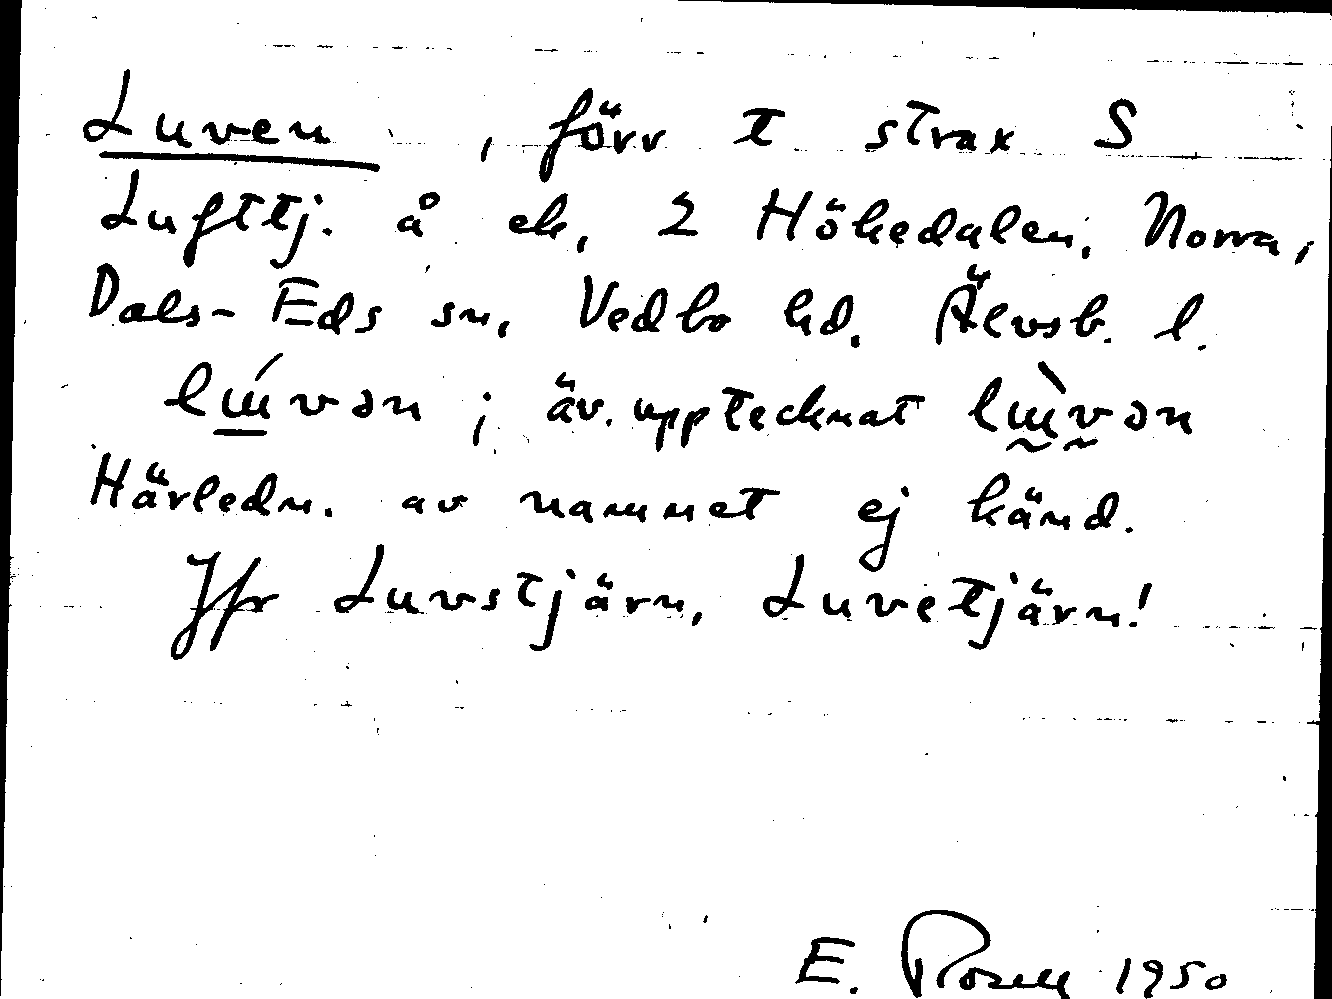 Luven, förr t strax S
Lufttj. å ek, 2 Hökedalen, Norra,
Dals-Eds sn, Vedbo hd, Älvsb. l.
lɯ́vən; äv. upptecknat lɯ̀vən
Härledn. av namnet ej känd.
Jfr Luvstjärn, Luvetjärn!
E. Rosell 1950